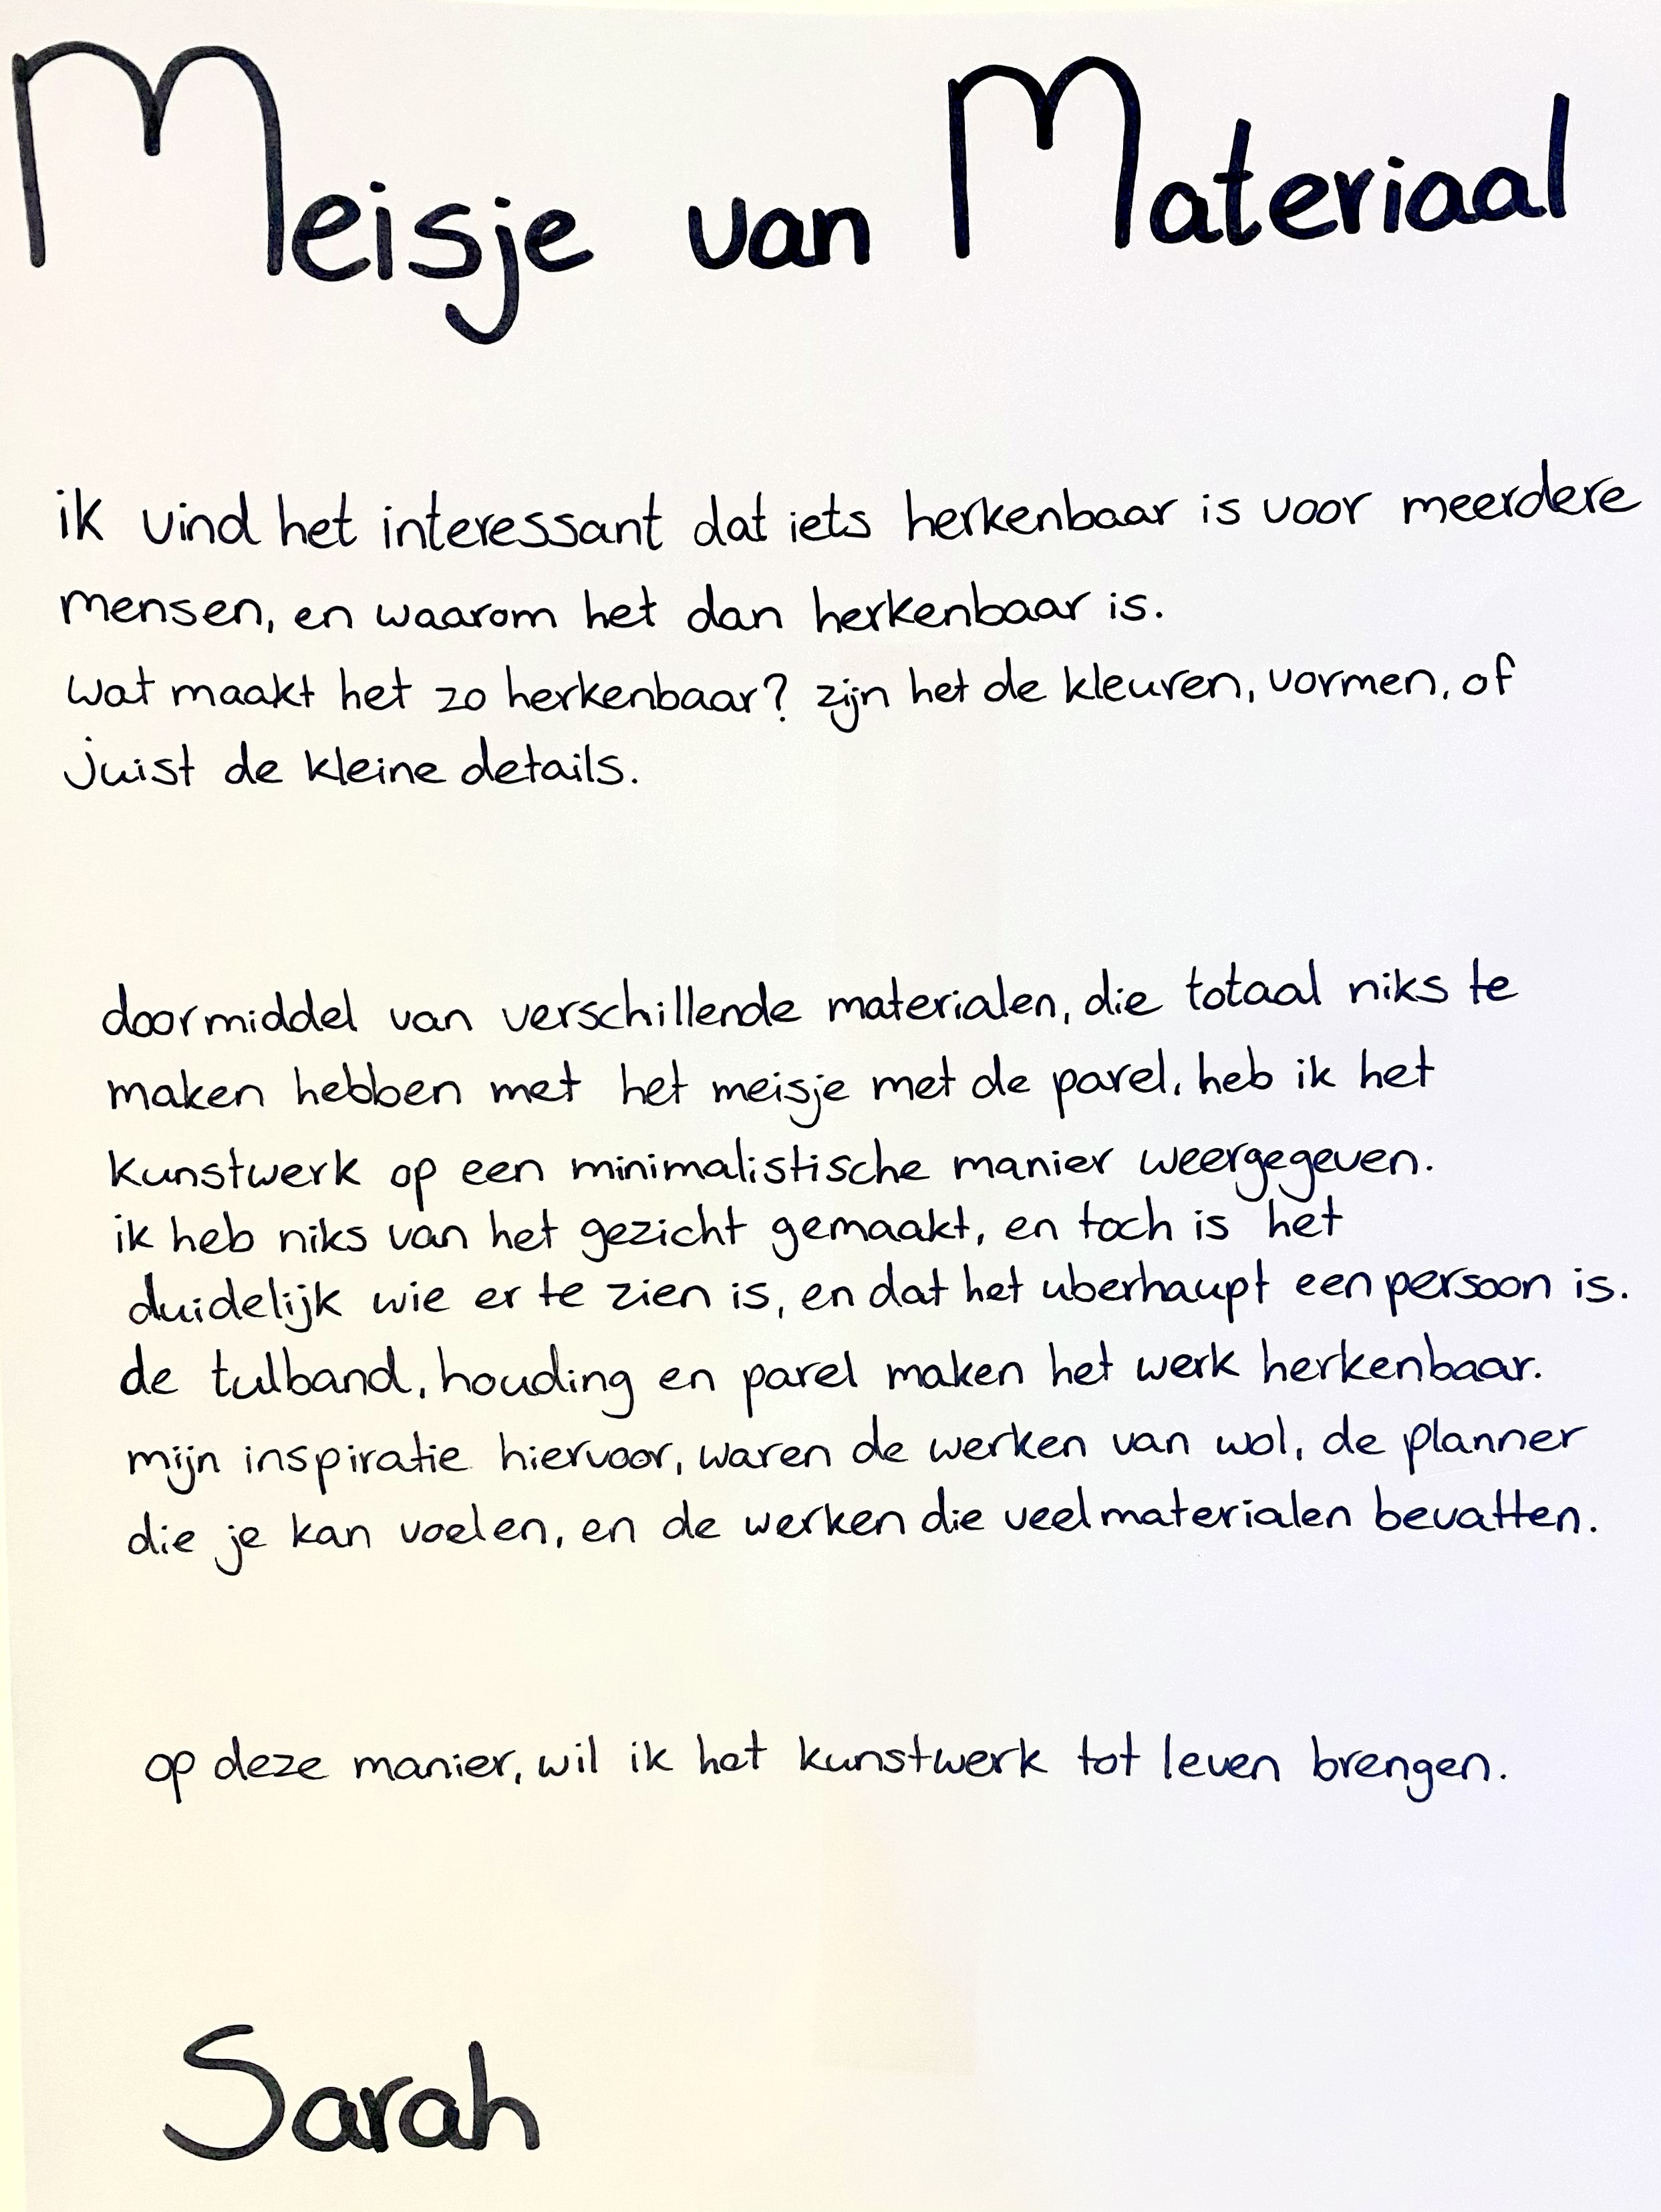 Meisje van Materiaal
ik vind het interessant dat iets herkenbaar is voor meerdere
mensen, en waarom het dan herkenbaar is.
wat maakt het zo herkenbaar? zijn het de kleuren, vormen, of
juist de kleine details.
doormiddel van verschillende materialen, die totaal niks te
maken hebben met het meisje met de parel, heb ik het
kunstwerk op een minimalistische manier weergegeven.
ik heb niks van het gezicht gemaakt, en toch is het
duidelijk wie er te zien is, en dat het uberhaupt een persoon is.
de tulband, houding en parel maken het werk herkenbaar.
mijn inspiratie hiervoor, waren de werken van wol, de planner
die je kan voelen, en de werken die veel materialen bevatten.
op deze manier, wil ik het kunstwerk tot leven brengen.
Sarah